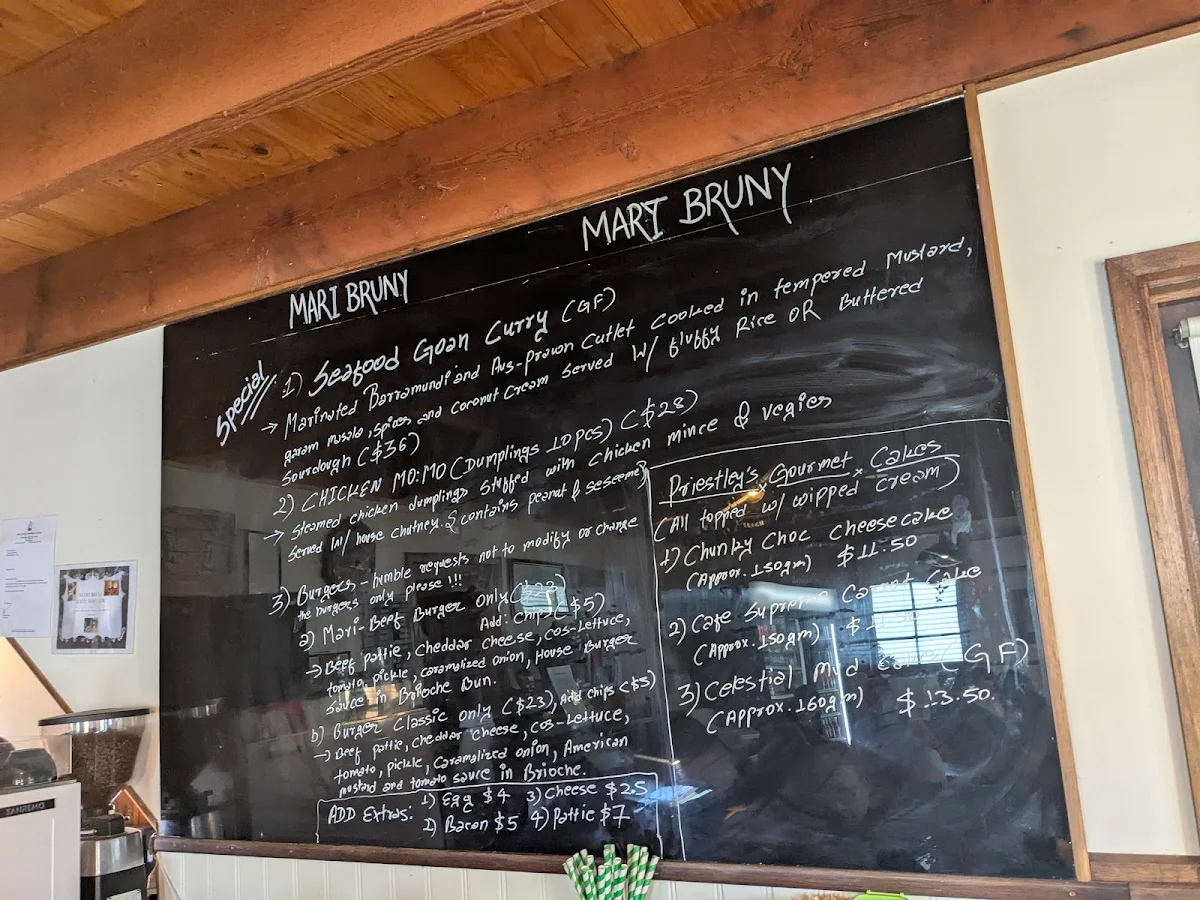 MARI BRUNY
MARI BRUNY
Special
1) Seafood Goan Curry (GF)
→ Marinated Barramundi and Aus-prawn Cutlet Cooked in tempered Mustard,
garam masala, spices and Coconut Cream Served W/ fluffy Rice OR Buttered
Sourdough ($36)
2) CHICKEN MO:MO (Dumplings 10pcs) ($28)
→ Steamed chicken dumplings stuffed with chicken mince & vegies
Served W/ house chutney. & contains peanut & seseeme
3) Burgers - humble requests not to modify or change
the burgers only please !!!
a) Mari-Beef Burger only ($23)
Add: chips ($5)
→ Beef pattie, cheddar cheese, cos-lettuce,
tomato, pickle, caramalized onion, House Burger
sauce in Brioche Bun.
b) Burger Classic only ($23), Add chips ($5)
→ Beef pattie, cheddar cheese, cos-lettuce,
tomato, pickle, caramalized onion, American
mustard and tomato sauce in Brioche.
ADD Extras: 1) Egg $4 3) Cheese $2.5
2) Bacon $5 4) Pattie $7
Priestley's x Gourmet x Cakes
(All topped w/ wipped cream)
1) Chunky Choc Cheesecake
(Approx. 150gm) $11.50
2) Cafe Supreme Carrot Cake
(Approx. 150gm) $
3) Celestial Mud (GF)
(Approx. 160gm) $13.50.
SANREMO